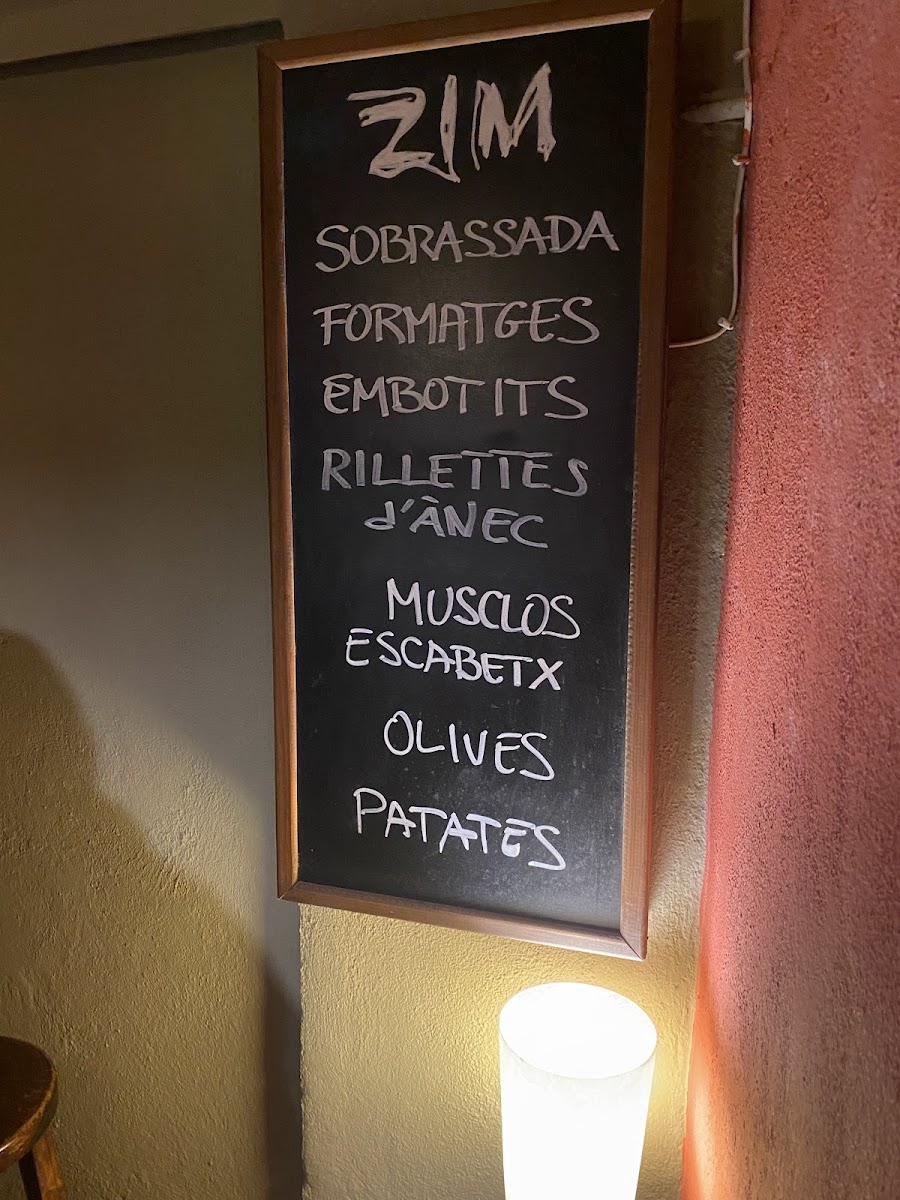 ZIM
SOBRASSADA
FORMATGES
EMBOTITS
RILLETTES
d'ÀNEC
MUSCLOS
ESCABETX
OLIVES
PATATES